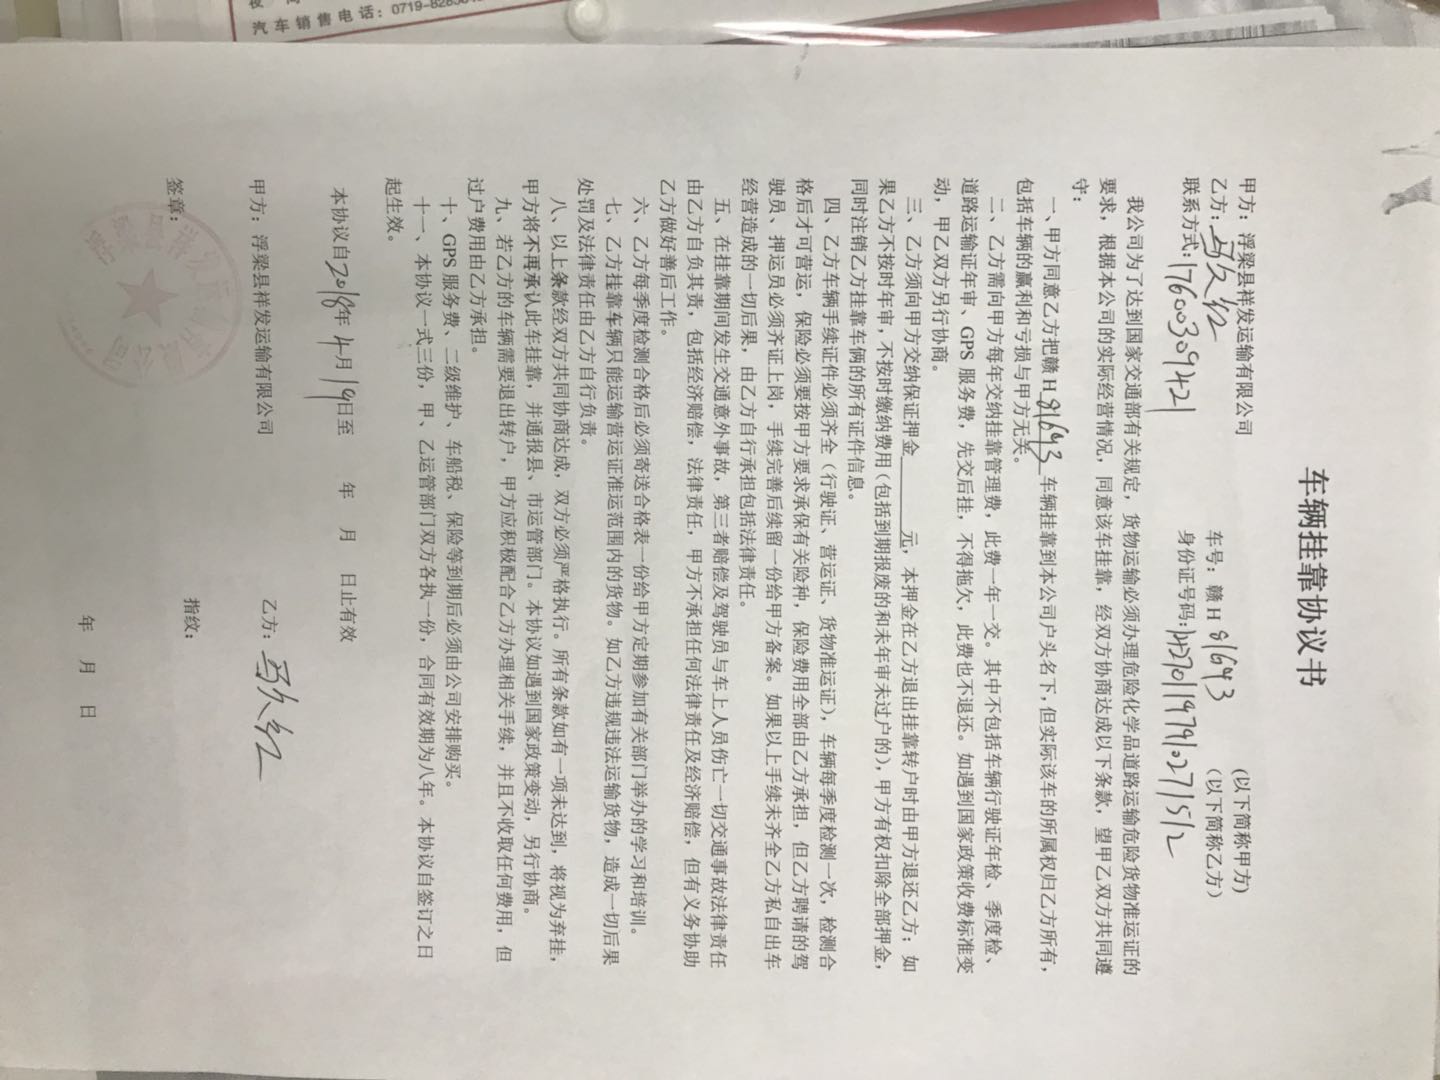 汽车销售电话：0719-8285
车辆挂靠协议书
甲方：浮梁县祥发运输有限公司 （以下简称甲方）
乙方： 车号：赣H 81643 （以下简称乙方）
联系方式：17600309421 身份证号码：
我公司为了达到国家交通部有关规定，货物运输必须办理危险化学品道路运输危险货物准运证的
要求，根据本公司的实际经营情况，同意该车挂靠，经双方协商达成以下条款，望甲乙双方共同遵
守：
一、甲方同意乙方把赣H 81643 车辆挂靠到本公司户头名下，但实际该车的所属权归乙方所有，
包括车辆的赢利和亏损与甲方无关。
二、乙方需向甲方每年交纳挂靠管理费，此费一年一交。其中不包括车辆行驶证年检、季度检、
道路运输证年审、GPS 服务费，先交后挂，不得拖欠，此费也不退还。如遇到国家政策收费标准变
动，甲乙双方另行协商。
三、乙方须向甲方交纳保证押金______元，本押金在乙方退出挂靠转户时由甲方退还乙方；如
果乙方不按时年审，不按时缴纳费用（包括到期报废的和未年审未过户的），甲方有权扣除全部押金，
同时注销乙方挂靠车辆的所有证件信息。
四、乙方车辆手续证件必须齐全（行驶证、营运证、货物准运证），车辆每季度检测一次，检测合
格后才可营运，保险必须要按甲方要求承保有关险种，保险费用全部由乙方承担，但乙方聘请的驾
驶员、押运员必须齐证上岗，手续完善后续留一份给甲方备案。如果以上手续未齐全乙方私自出车
经营造成的一切后果，由乙方自行承担包括法律责任。
五、在挂靠期间发生交通意外事故，第三者赔偿及驾驶员与车上人员伤亡一切交通事故法律责任
由乙方自负其责，包括经济赔偿，法律责任，甲方不承担任何法律责任及经济赔偿，但有义务协助
乙方做好善后工作。
六、乙方每季度检测合格后必须寄送合格表一份给甲方定期参加有关部门举办的学习和培训。
七、乙方挂靠车辆只能运输营运证准运范围内的货物。如乙方违规违法运输货物，造成一切后果
处罚及法律责任由乙方自行负责。
八、以上条款经双方共同协商达成，双方必须严格执行。所有条款如有一项未达到，将视为弃挂，
甲方将不再承认此车挂靠，并通报县、市运管部门。本协议如遇到国家政策变动，另行协商。
九、若乙方的车辆需要退出转户，甲方应积极配合乙方办理相关手续，并且不收取任何费用，但
过户费用由乙方承担。
十、GPS 服务费、二级维护、车船税、保险等到期后必须由公司安排购买。
十一、本协议一式三份，甲、乙运管部门双方各执一份，合同有效期为八年。本协议自签订之日
起生效。
本协议自2018年 4月 19日至 年 月 日止有效
甲方：浮梁县祥发运输有限公司 乙方：
签章： 指纹：
年 月 日